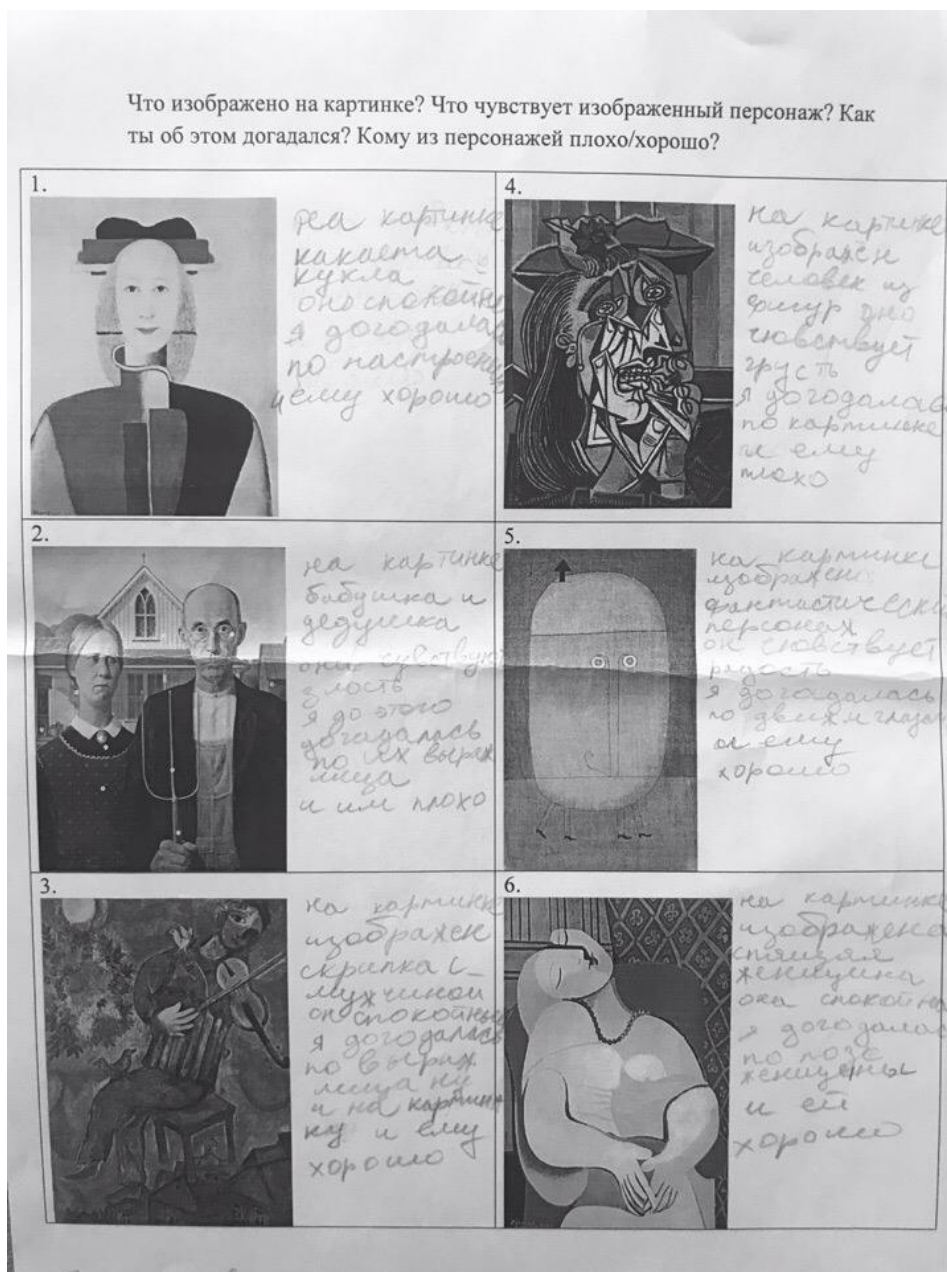 Что изображено на картинке? Что чувствует изображенный персонаж? Как
ты об этом догадался? Кому из персонажей плохо/хорошо?
1.
на картинке
какаета
кукла
оно спокойно
я догодалась
по настроению
и ему хорошо
2.
на картинке
бабушка и
дедушка
они чувствуют
злость
я до этого
догадалась
по их выраж
лица
и им плохо
3.
на картинке
изображен
скрипка с
мужчиной
он спокойный
я догодалась
по выраж
лица ну
и на картин
ку и ему
хорошо
4.
на картинке
изображен
человек из
фигур оно
чювствует
грусть
я догодалась
по картинке
и ему
плохо
5.
на картинки
изображен
фантастически
персонаж
он чювствует
радость
я догодалась
по двим глазам
и ему
хорошо
6.
на картинке
изображена
спящяя
женщина
она спокойна
я догодалась
по позе
женщины
и ей
хорошо